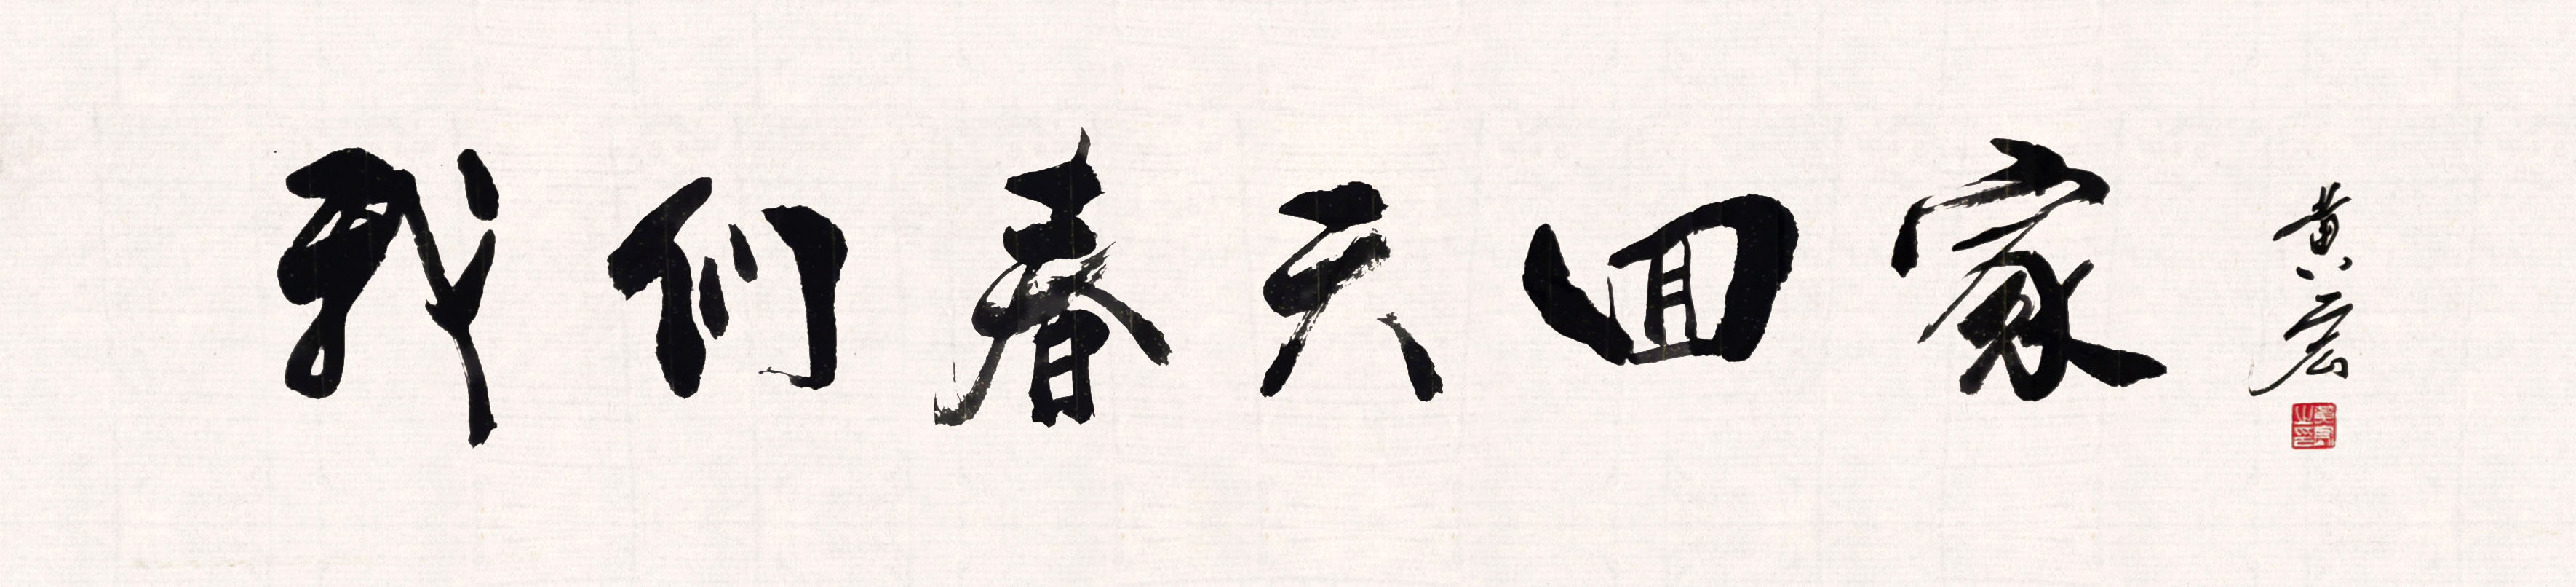 我们春天回家
黄宏